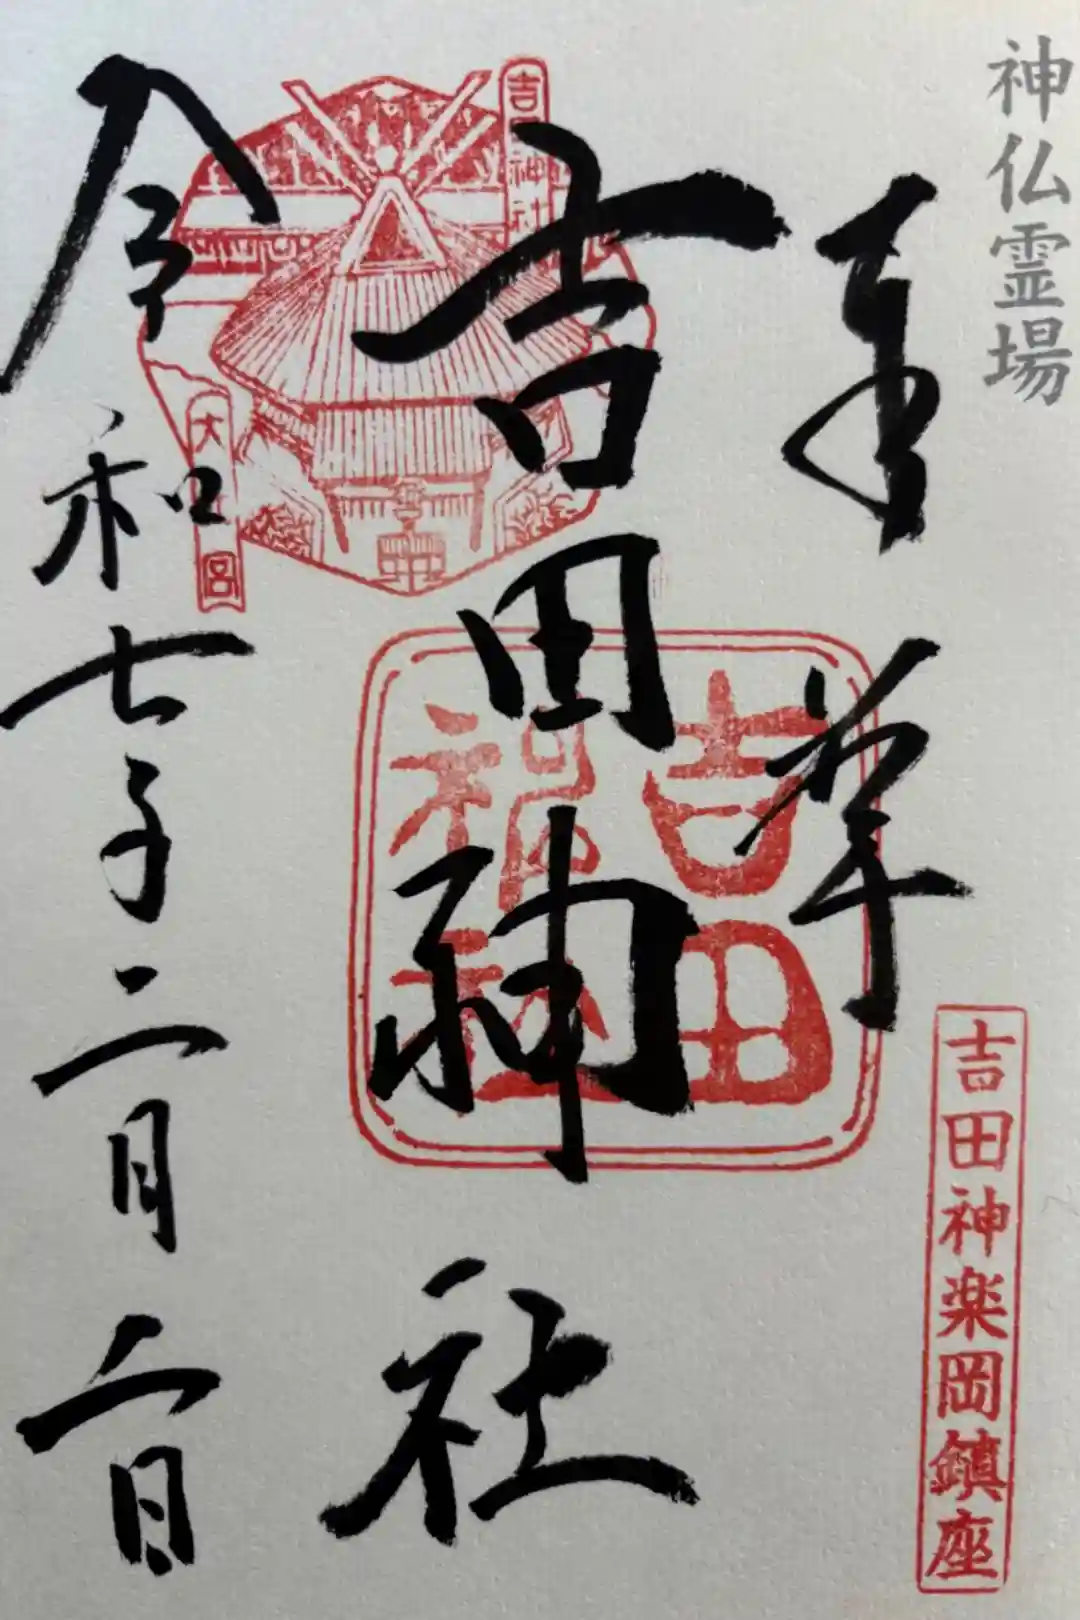 神仏霊場
奉拝
吉田神楽岡鎮座
吉田神社
吉田神社
吉田神社
大元宮
令和七年二月二日